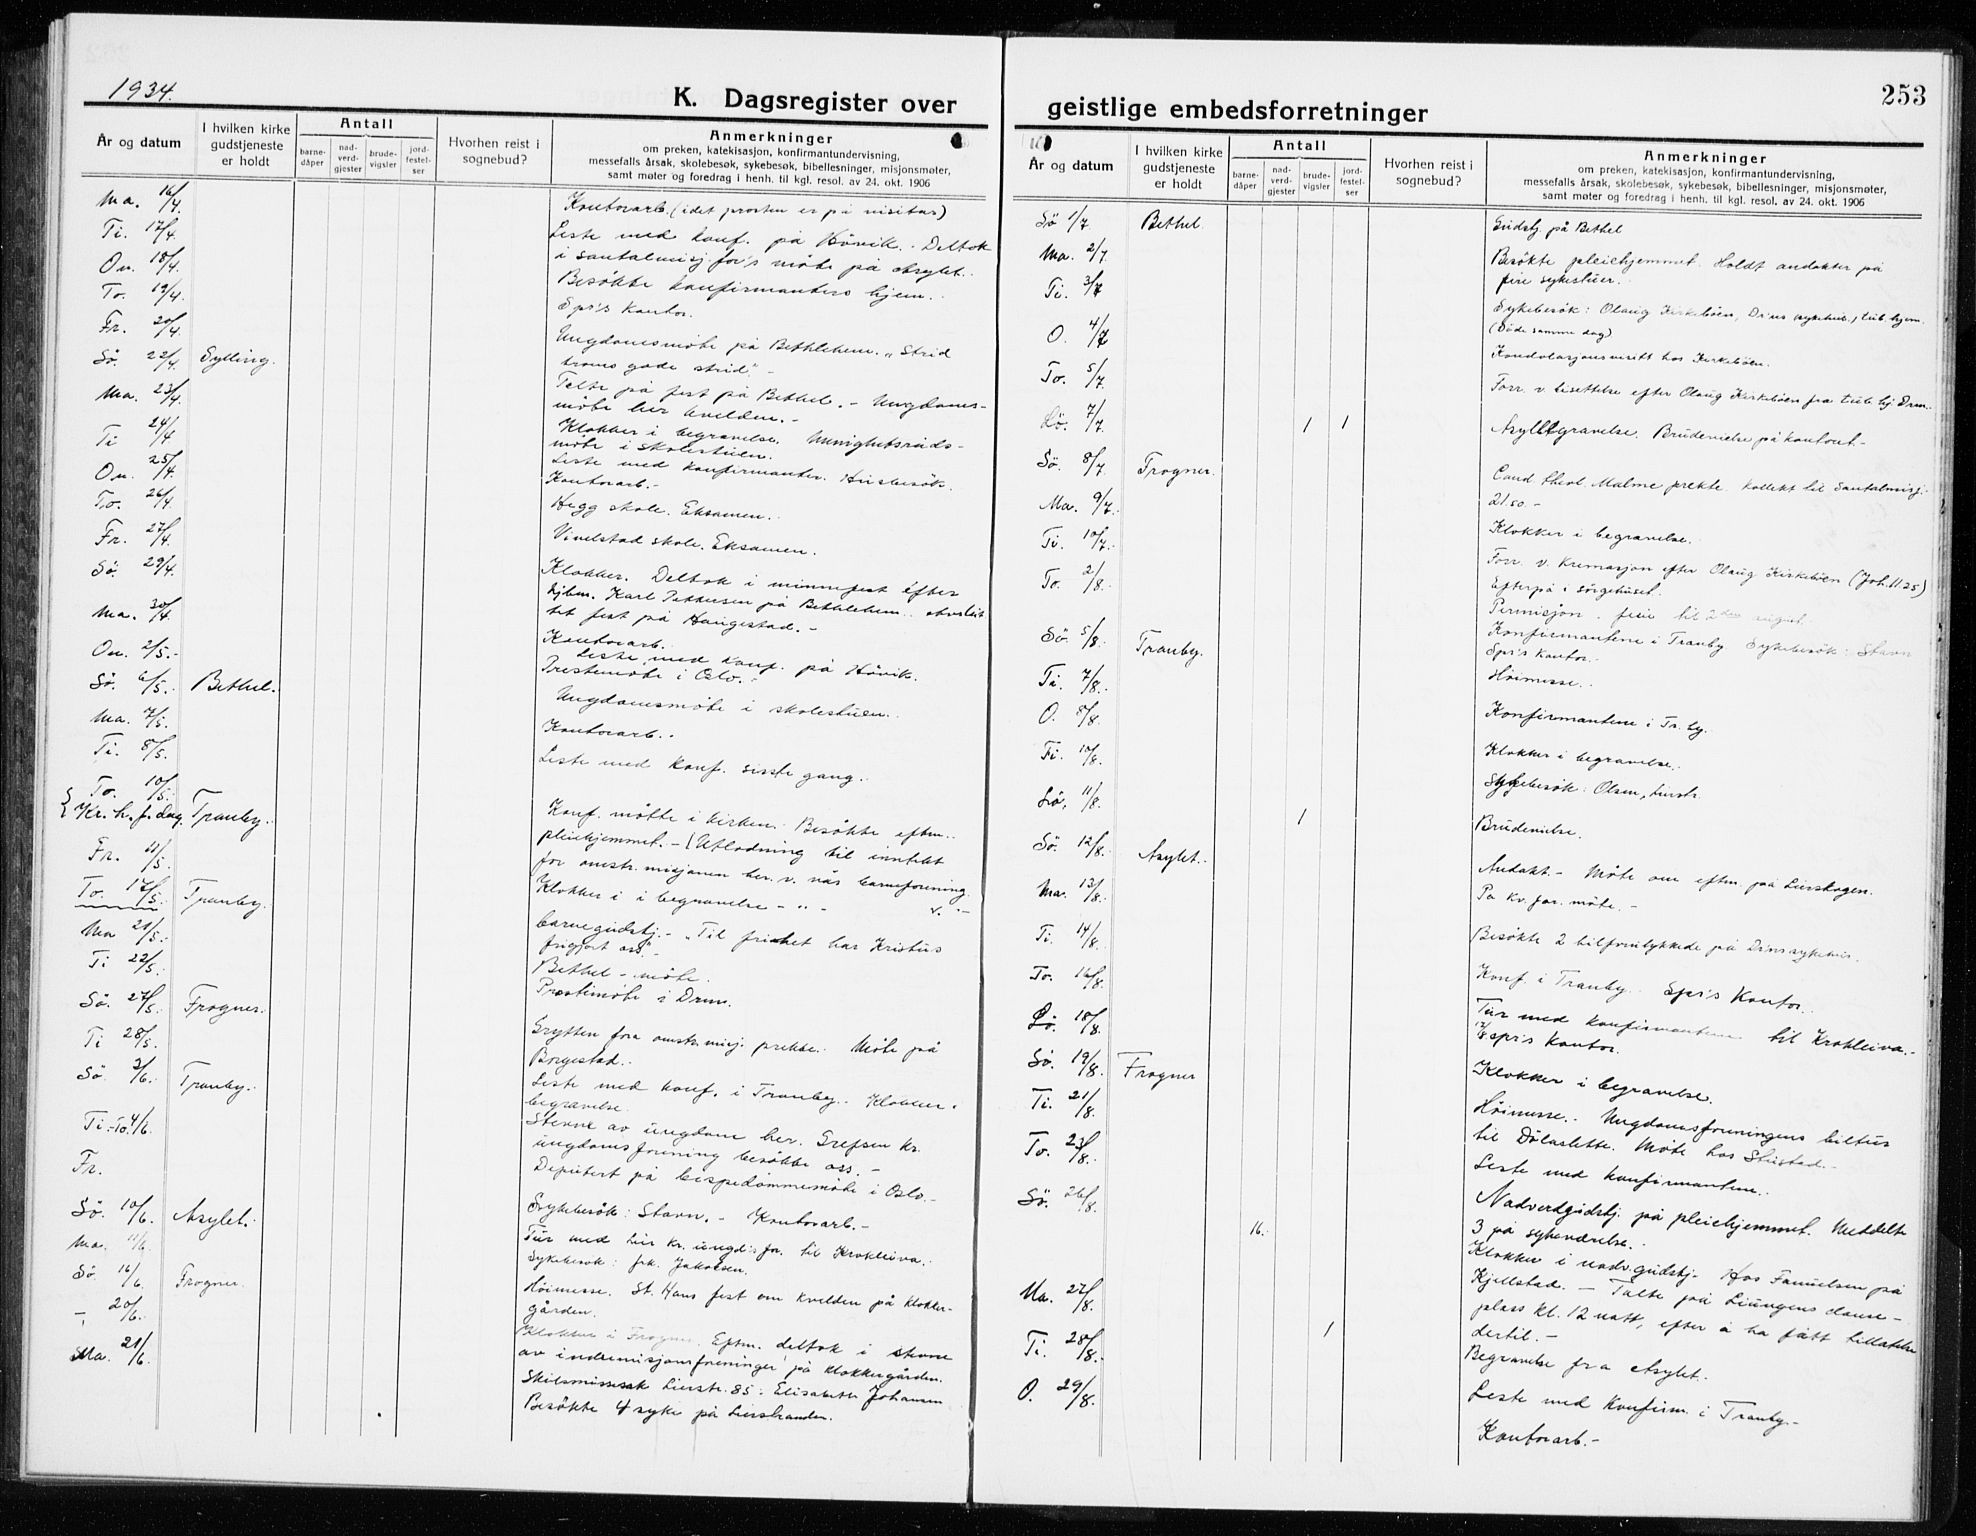 1934.
K. Dagsregister over
År og datum
I hvilken kirke gudstjeneste er holdt
Antall
barne-dåper
nad-verd-gjester
brude-vigsler
jord-festel-ser
Hvorhen reist i sognebud?
Anmerkninger
om preken, katekisasjon, konfirmantundervisning,
messefalls årsak, skolebesøk, sykebesøk, bibellesninger, misjonsmøter,
samt møter og foredrag i henh. til kgl. resol. av 24. okt. 1906
Ma. 16/4.
Ti. 17/4.
On. 18/4.
To. 19/4.
Fr. 20/4.
Sö. 22/4. Sylling.
Ma. 23/4.
Ti 24/4
On. 25/4.
To. 26/4.
Fr. 27/4.
Sö. 29/4.
Ma. 30/4.
On. 2/5.-
Sö. 6/5. Bethel.
Ma. 7/5.
Ti. 8/5.
To. 10/5.
Kr. h. f. dag. Tranby.
Fr. 11/5.
To. 17/5. Tranby.
Ma 21/5.
Ti 22/5.
Sö. 27/5. Frogner.
Ti 28/5.
Sö 3/6. Tranby.
Ti.-To. 4/6.
Fr.
Sö. 10/6. Asylet.
Ma. 11/6.
Sö. 16/6. Frogner.
- 20/6.
Ma. 21/6.
Kontorarb. (idet prosten er på visitas)
Leste med konf. på Hövik. Deltok
i santalmisj.for's möte på Asylet.
Besökte konfirmanters hjem.
Spr's kontor.
Ungdomsmöte på Bethlehem. "Strid
troens gode strid".-
Talte på fest på Bethel.- Ungdoms-
möte her kvelden.-
Klokker i begravelse. Menighetsråds-
möte i skolestuen.
Leste med konfirmanter. Husbesök.
Kontorarb.-
Hegg skole. Eksamen.
Vivelstad skole. Eksamen.
Klokker. Deltok i minnefest efter
Karl Pettersen på Bethlehem.
tet fest på Haugestad.-
Kontorarb.
Leste med konf. på Hövik.
Prestemöte i Oslo.-
Ungdomsmöte i skolestuen.
Kontorarb.
Leste med konf. siste gang.
Konf. mötte i kirken. Besökte eftm.
pleiehjemmet.- (Utlodning til inntekt
for omstr.misjonen her. v. vår barneforening.
Klokker i begravelse - " -
barnegudstj.- "Til frihet har Kristus
frigjort oss".-
Bethel - möte.
Prestemöte i Drm.
Grytten fra omstr.misj. prekte. Möte på
Borgestad.
Leste med konf. i Tranby. Klokker.
begravelse.
Stevne av ungdom her. Grefsen kr.
ungdomsforening besökte oss.-
Deputert på bispedömmemöte i Oslo.-
Sykebesök: Stavn.- Kontorarb.-
Tur med Lier kr. ungd:for. til Krokleiva.
Sykebesök: frk. Jakobsen.
Höimesse. St. Hans fest om kvelden på klokker-
gården.
Klokker i Frogner. Eftm. deltok i stevne
av indremisjonsforeninger på klokkergården.
Skilsmissesak Lierstr. 85: Elisabeth Johansen
Besökte 4 syke på Lierstranden.
253
geistlige embedsforretninger
År og datum
I hvilken kirke gudstjeneste er holdt
Antall
barne-dåper
nad-verd-gjester
brude-vigsler
jord-festel-ser
Hvorhen reist i sognebud?
Anmerkninger
om preken, katekisasjon, konfirmantundervisning,
messefalls årsak, skolebesøk, sykebesøk, bibellesninger, misjonsmøter,
samt møter og foredrag i henh. til kgl. resol. av 24. okt. 1906
Sö 1/7. Bethel.
Ma. 2/7.
Ti. 3/7
O. 4/7
To. 5/7.
Lö. 7/7. 1 1
Sö. 8/7. Frogner.
Ma. 9/7.
Ti. 10/7.
To. 2/8.
Sö. 5/8. Tranby.
Ti. 7/8.
O. 8/8.
Fr. 10/8.
Lö. 11/8. 1
Sö. 12/8. Asylet.
Ma. 13/8.
Ti. 14/8.
To. 16/8.
Lö. 18/8.
Sö. 19/8. Frogner
Ti. 21/8.
To. 23/8.
Sö. 26/8. 16.
Ma. 27/8. 1
Ti. 28/8.
O. 29/8.
Gudstj. på Bethel
Besökte pleiehjemmet. Holdt andakter på
fire sykestuer.
Sykebesök: Olaug Kirkeböen, Drms sykehus, tub.hjem.
(Döde samme dag)
Kondolasjonsvisitt hos Kirkeböen.
Forr. v. bisettelse efter Olaug Kirkeböen fra tub.hj Drm.
Asylbegravelse. Brudevielse på kontoret.-
Cand. theol. Malme prekte. Kollekt til Santalmisj.
21.50.-
Klokker i begravelse.
Forr. v. kremasjon efter Olaug Kirkeböen (Joh. 11.25)
Efterpå i sörgehuset.
Permisjon. ferie til 2den august.
Konfirmantene i Tranby Sykebesök: Stavn
Spr's kontor.-
Höimesse.
Konfirmantene i Tr.by.
Klokker i begravelse.
Sykebesök: Olsen, Lierstr.
Brudevielse.
Andakt.- Möte om eftm. på Lierskogen.
På kv.for. möte.-
Besökte 2 bilforulykkede på Drms sykehus.
Konf. i Tranby. Spr's Kontor.
Tur med konfirmantene til Krokleiva.-
17/8 Spr's kontor.
Klokker i begravelse.
Höimesse. Ungdomsforeningens biltur
til Dölaslette. Möte hos Stustad.-
Leste med konfirmantene.
Nadverdgudstj. på pleiehjemmet. Meddelte
3 på sykeværelse.
Klokker i nadv.gudstj. Hos Samuelsen på
Kjellstad.- Talte på Liungens danse-
plass kl. 12 natt, efter å ha fått tillatelse
dertil.-
Begravelse fra Asylet.
Leste med Konfirm. i Tranby.-
Kontorarb.-